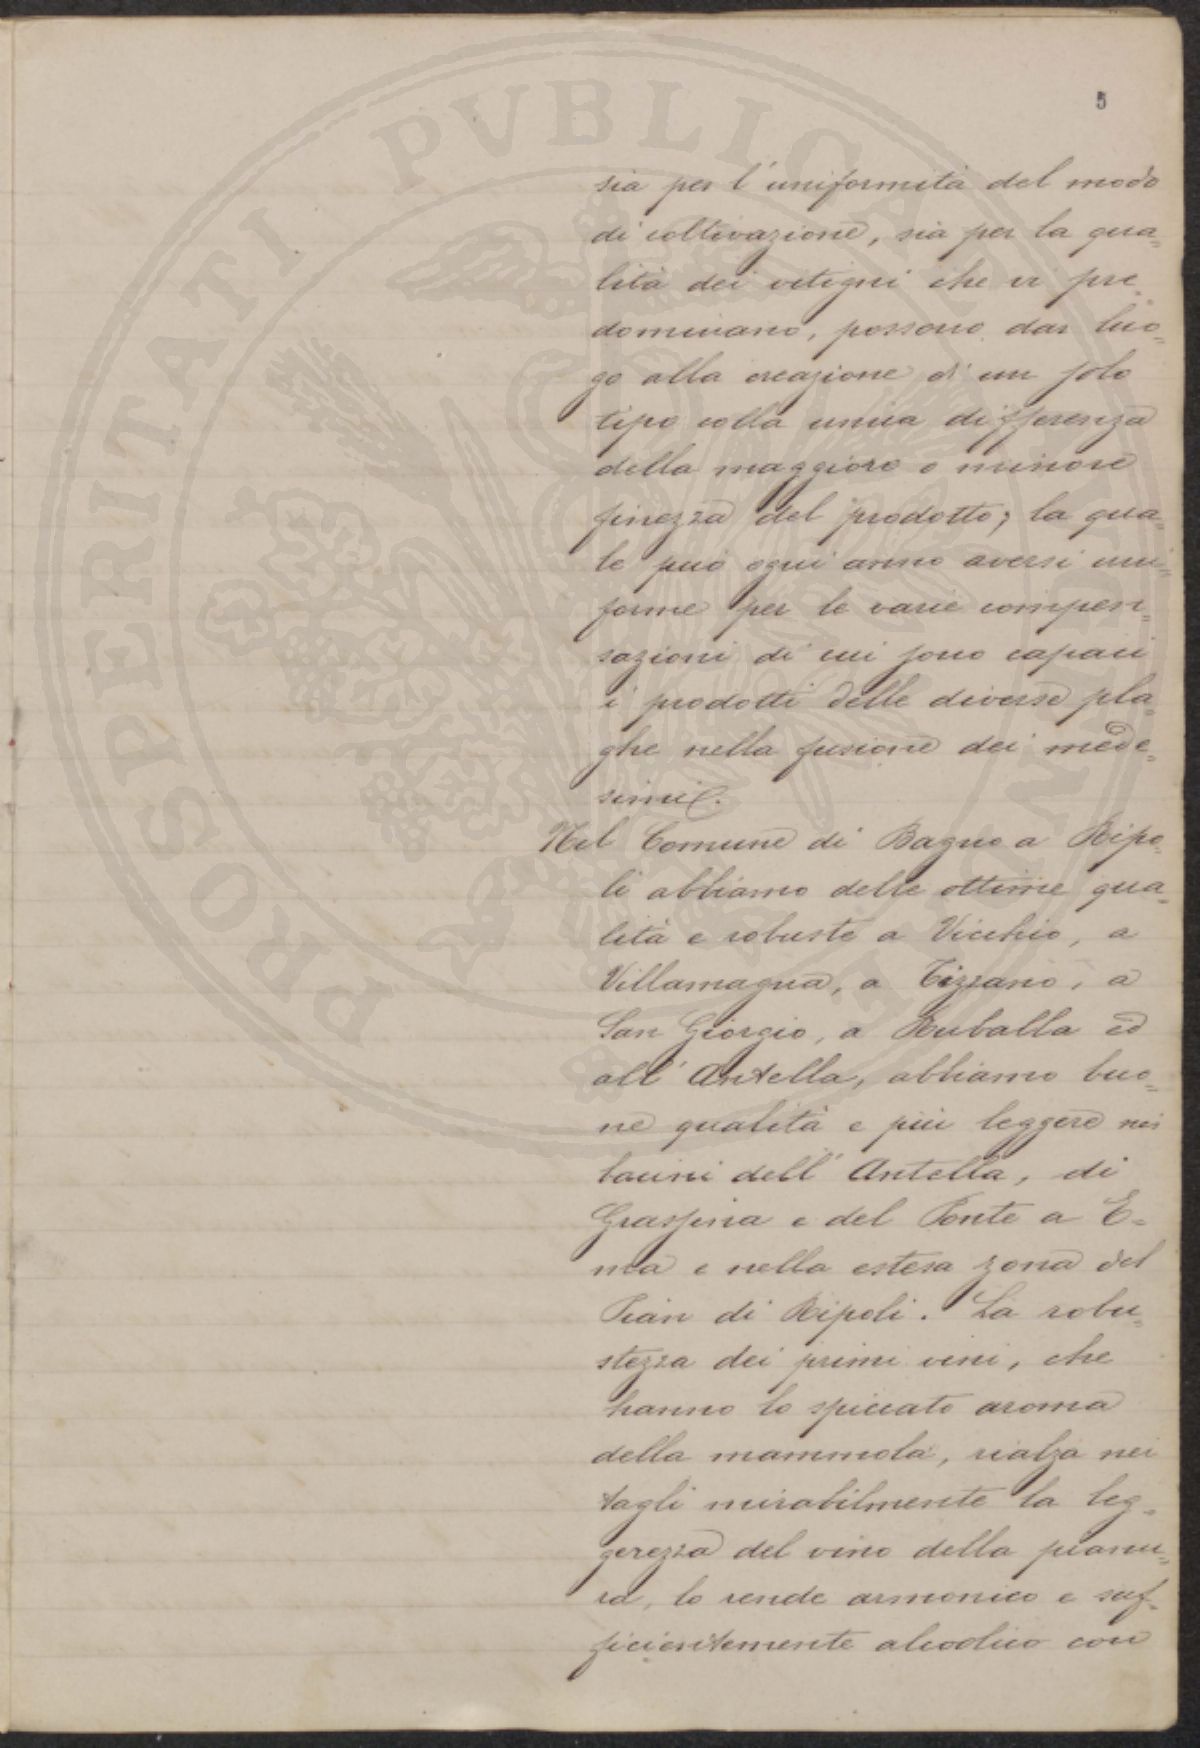 5
sia per l'uniformità del modo
di coltivazione, sia per la qua=
lità dei vitigni che vi pre=
dominano, possono dar luo=
go alla creazione di un solo
tipo colla unica differenza
della maggiore o minore
finezza del prodotto; la qua=
le può ogni anno aversi uni=
forme per le varie compen=
sazioni di cui sono capaci
i prodotti delle diverse pla=
ghe nella fusione dei mede=
simi.
Nel Comune di Bagno a Ripo=
li abbiamo delle ottime qua=
lità e robuste a Vicchio, a
Villamagna, a Tizzano, a
San Giorgio, a Ruballa ed
all'Antella, abbiamo buo=
ne qualità e più leggere nei
bacini dell'Antella, di
Grassina e del Ponte a E=
ma e nella estesa zona del
Pian di Ripoli. La robu=
stezza dei primi vini, che
hanno lo spiccato aroma
della mammola, rialza nei
tagli mirabilmente la leg=
gerezza del vino della pianu=
ra, lo rende armonico e suf=
ficientemente alcoolico con
PROSPERITATI PVBLICAE